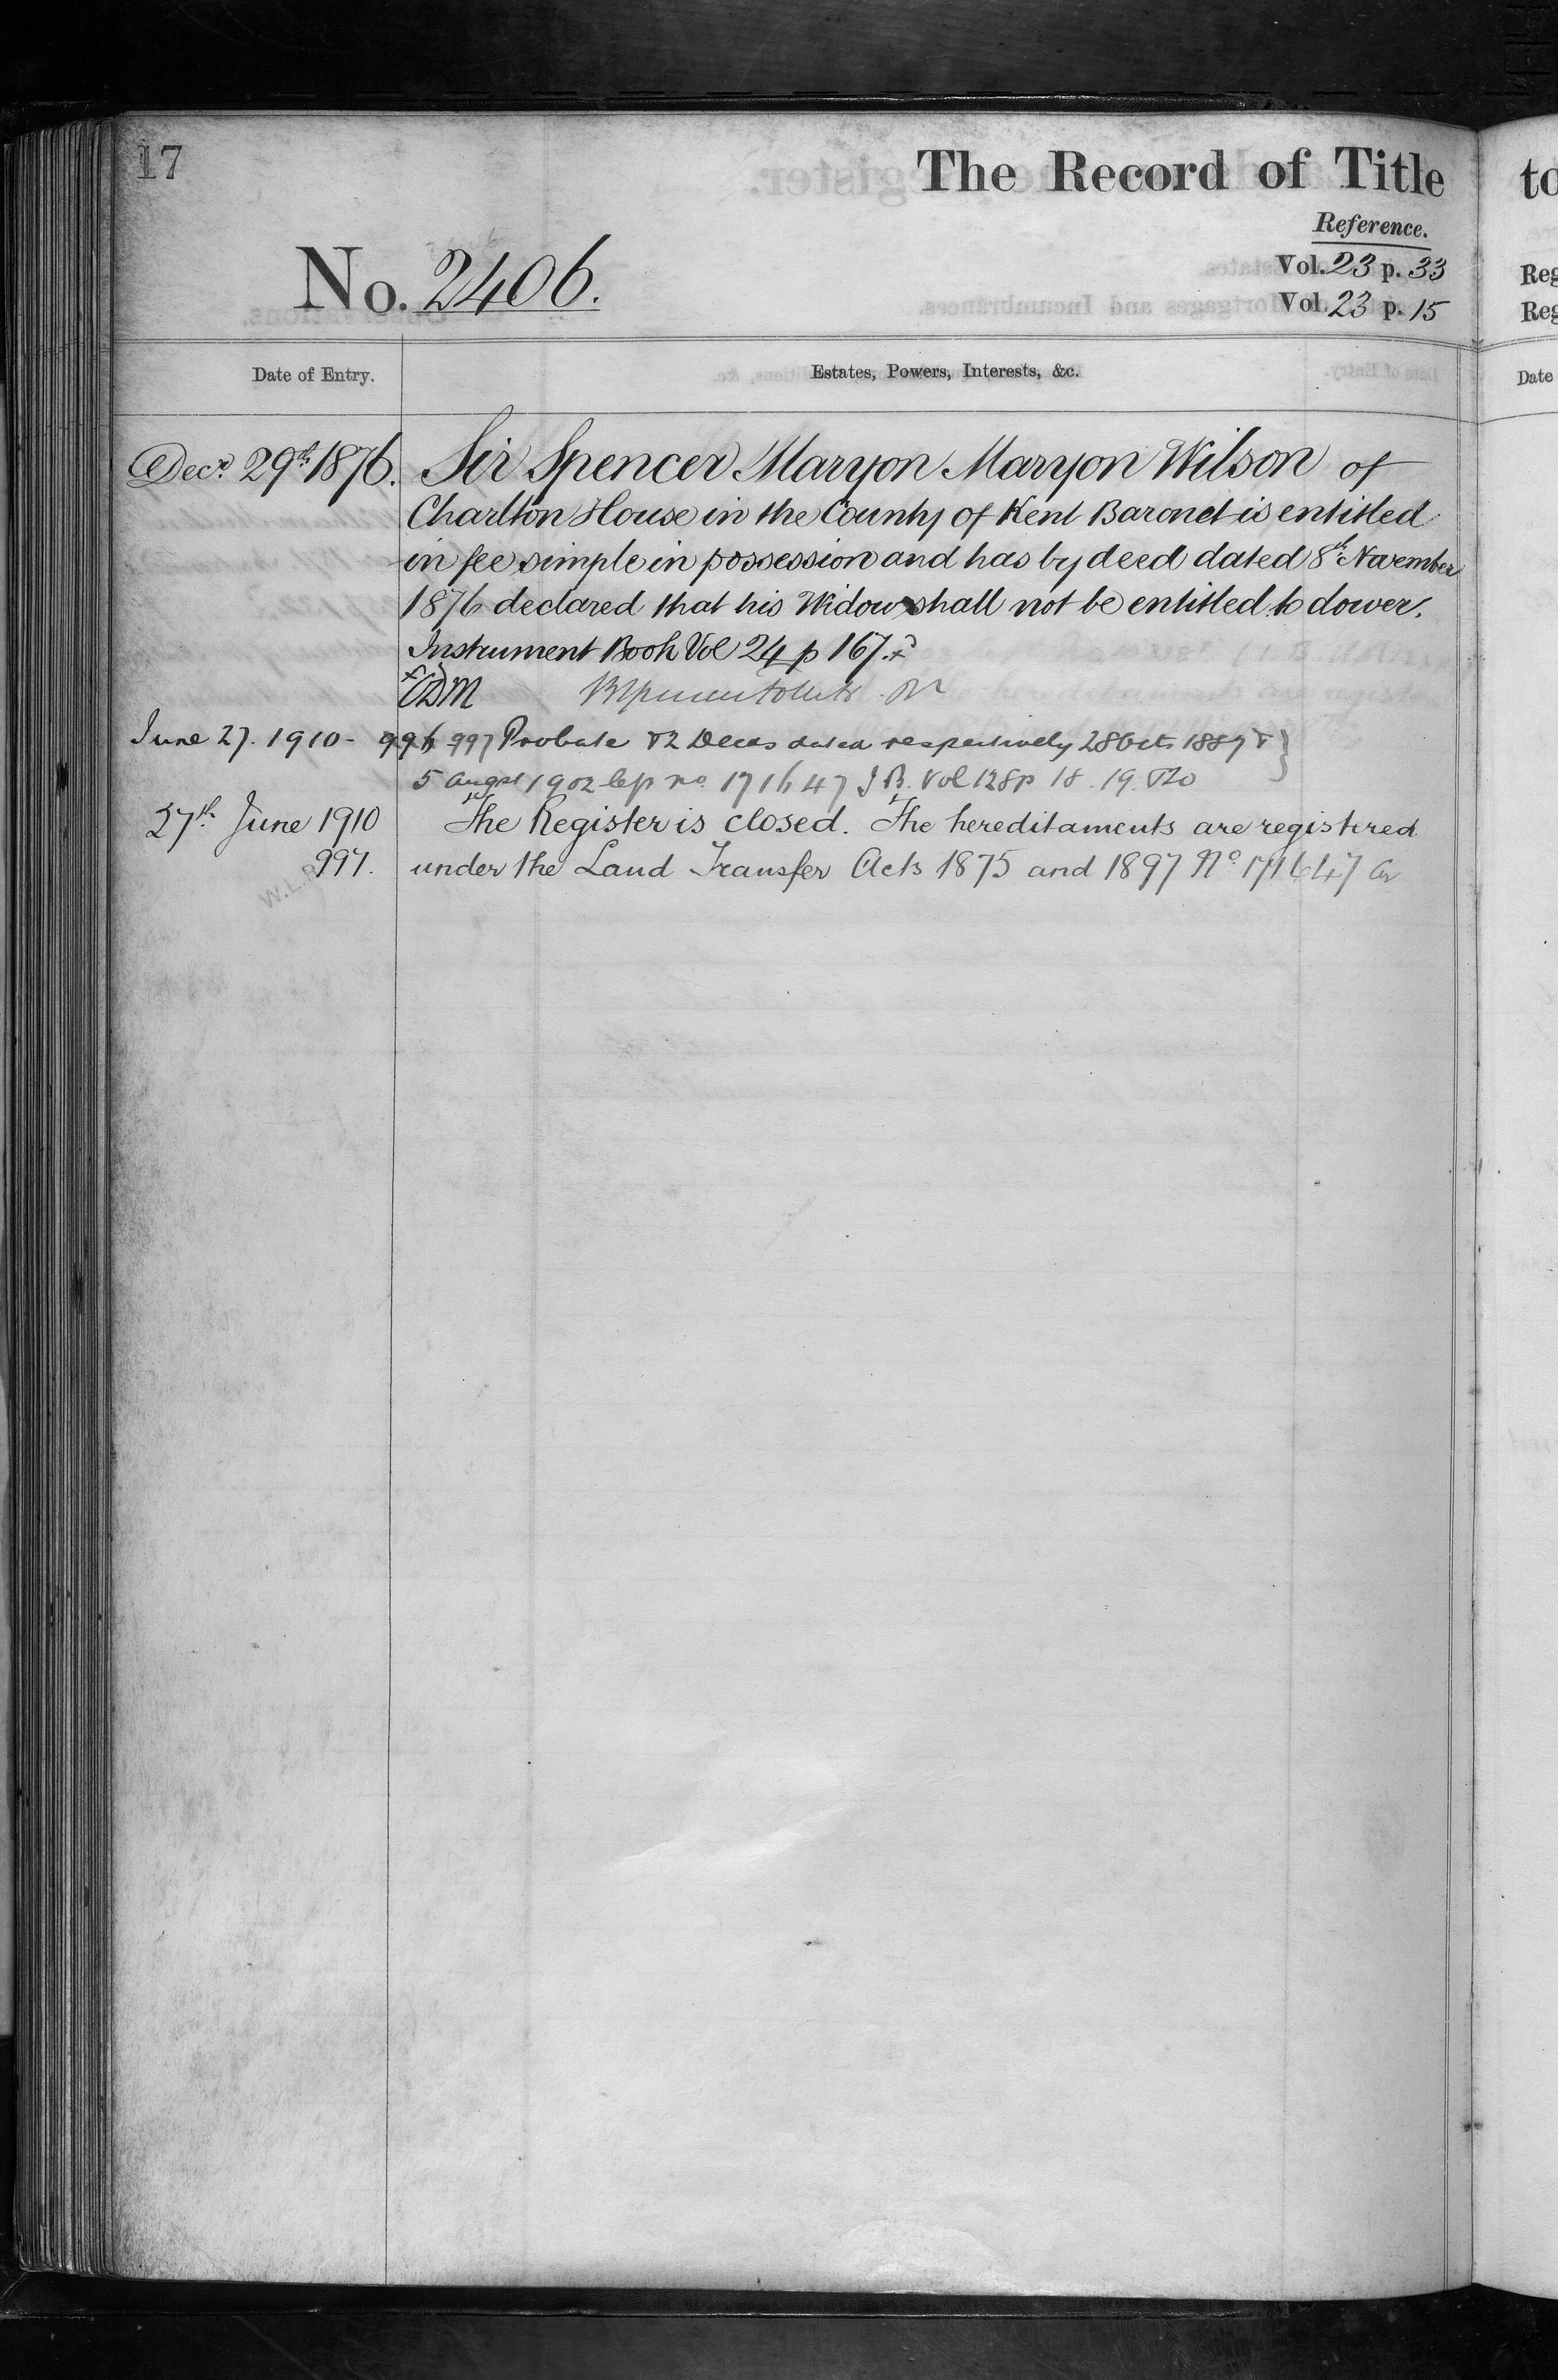 17
The Record of Title
Reference.
No. 2406.
Vol. 23 p. 33
Vol. 23 p. 15
Date of Entry.
Estates, Powers, Interests, &c.
Decr 29th 1876. Sir Spencer Maryon Maryon Wilson of
Charlton House in the County of Kent Baronet is entitled
in fee simple in possession and has by deed dated 8th November
1876 declared that his Widow shall not be entitled to dower.
Instrument Book Vol 24 p 167.
June 27. 1910 - 996 997 Probate & 2 Deeds dated respectively 28 Octr 1889 &
5 Augst 1902 no. 171647 I B. Vol 128 p 18. 19.
27th June 1910 The Register is closed. The hereditaments are registered
997. under the Land Transfer Acts 1875 and 1897 No. 171647
to
Reg
Reg
Date